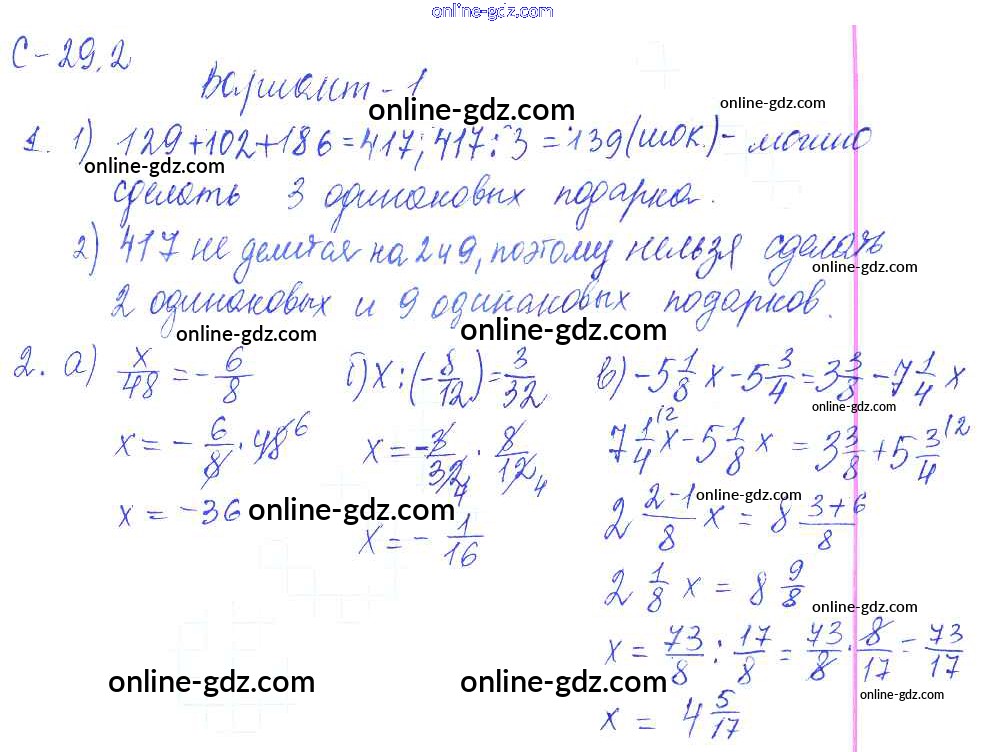 online-gdz.com
С-29.2
Вариант-1
online-gdz.com
online-gdz.com
1. 1) 129+102+186=417; 417:3=139(шок.)- можно
online-gdz.com
сделать 3 одинаковых подарка.
2) 417 не делится на 2 и 9, поэтому нельзя сделать
online-gdz.com
2 одинаковых и 9 одинаковых подарков.
online-gdz.com
online-gdz.com
2. а) x/48 = -6/8   б) x:(-8/12)=3/32   в) -5 1/8 x - 5 3/4 = 3 3/8 - 7 1/4 x
online-gdz.com
x = -6/8 · 48 6   x = -3/32 4 · 8/12 4   7 1/4 /2 x - 5 1/8 x = 3 3/8 + 5 3/4 /2
x = -36   online-gdz.com   x = -1/16   2 (2-1)/8 x = 8 (3+6)/8
online-gdz.com
online-gdz.com
2 1/8 x = 8 9/8
online-gdz.com
x = 73/8 : 17/8 = 73/8 · 8/17 = 73/17
online-gdz.com
online-gdz.com
online-gdz.com
x = 4 5/17